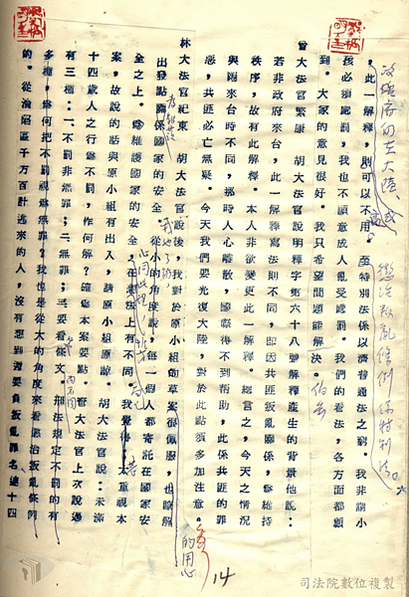 ，此一解釋，則可以不用。至特別法係以濟普通法之窮。我非謂小
孩必須處罰，我也不願意成人亂受處罰。我們的看法，各方面都顧
到。大家的意見很好。我只看望問題能解決。
曾大法官繁康　胡大法官說明釋字第六十八號解釋產生的背景他說：
若非政府來台，此一解釋寫法則不同，即因共匪叛亂關係，為維持
秩序，故有此解釋。本人非欲變更此一解釋。總言之，今天之情況
與剛來台時不同，那時人心離散，國際得不到幫助，此係共匪的罪
惡，共匪必亡無疑。今天我們要光復大陸，對於此點須多加注意。
林大法官紀東　胡大法官說後，我對於原小組的草案很佩服，也瞭解
的用心
出發點關係國家的安全。從小的角度說，每一個人都寄託在國家安
全之上。為維護國家的安全，在看法上有不同。我覺得太重視本
案，故說的話與原小組有出入，請原小組原諒。胡大法官說：未滿
十四歲人之行為不罰，作何解？確為本案要點。曾大法官上次說過
有三種：一、不罰非無罪；二、無罪；三、要看條文。刑法規定不罰的有
多種，為何把不罰視為無罪？我也是從大的角度來看懲治叛亂條例
的。從淪陷區千方百計逃來的人，沒有想到還要負叛亂罪名連十四
六
14
司法院數位複製